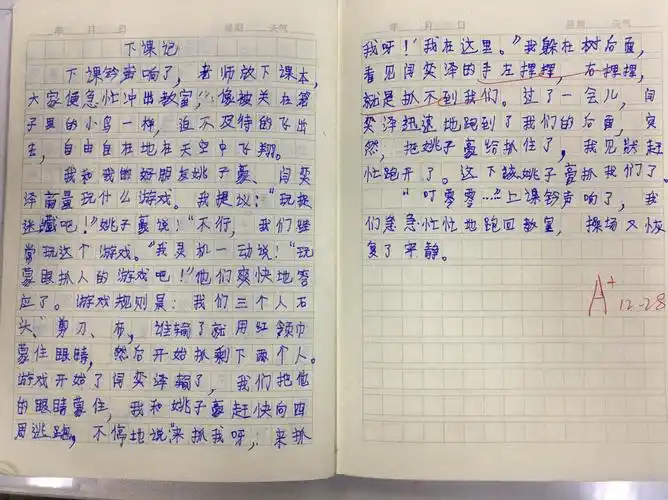 年 月 日 星期 天气
下课记
下课铃声响了，老师放下课本，
大家便急忙冲出教室，像被关在笼
子里的小鸟一样，迫不及待的飞出
去，自由自在地在天空中飞翔。
我和我的好朋友姚子豪、闫奕
泽商量玩什么游戏。我提议：“玩捉
迷藏吧！”姚子豪说：“不行，我们经
常玩这个游戏。”我灵机一动说：“玩
蒙眼抓人的游戏吧！”他们爽快地答
应了。游戏规则是：我们三个人石
头、剪刀、布，谁输了就用红领巾
蒙住眼睛，然后开始抓剩下两个人。
游戏开始了闫奕泽输了，我们把他
的眼睛蒙住，我和姚子豪赶快向四
周逃跑，不停地说“来抓我呀，来抓
年 月 日 星期 天气
我呀！我在这里。”我躲在树后面，
看见闫奕泽的手左摸摸，右摸摸，
就是抓不到我们。过了一会儿，闫
奕泽迅速地跑到了我们的后面，突
然，把姚子豪给抓住了，我见状赶
忙跑开了。这下被姚子豪抓我们了。
“叮零零……”上课铃声响了，我
们急急忙忙地跑回教室，操场又恢
复了平静。
A+ 12-28